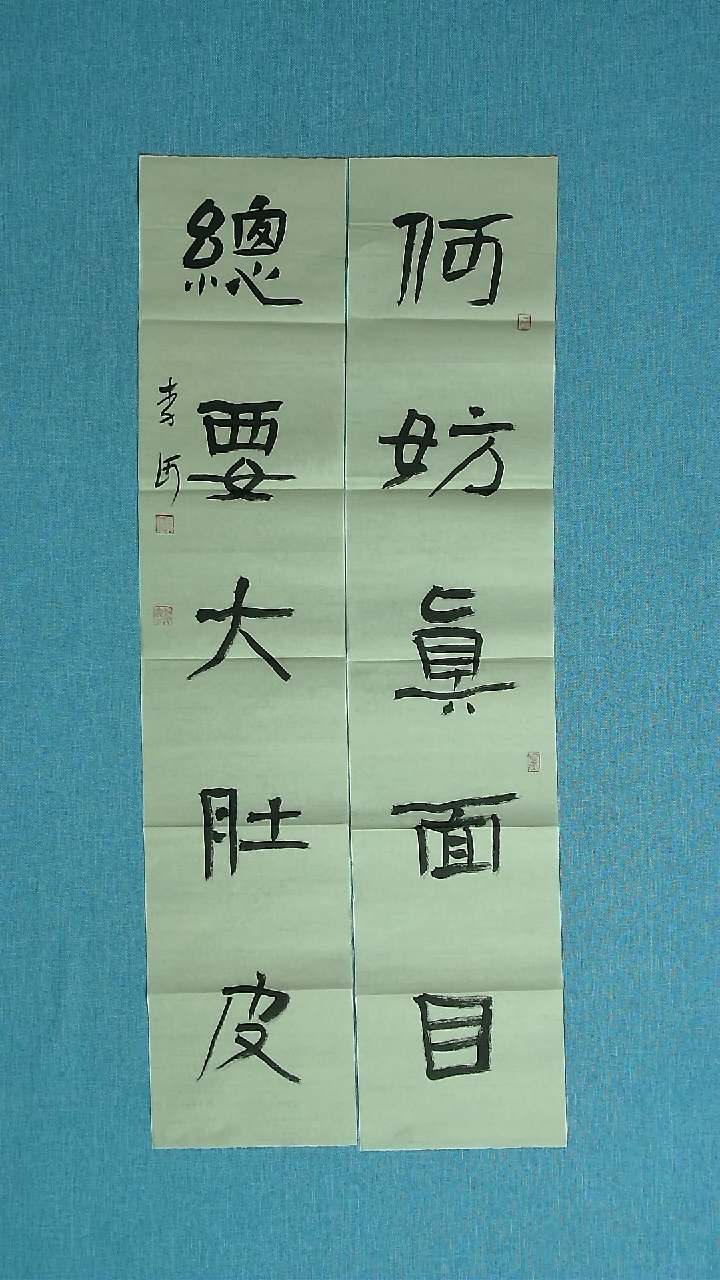 何妨眞面目
總要大肚皮